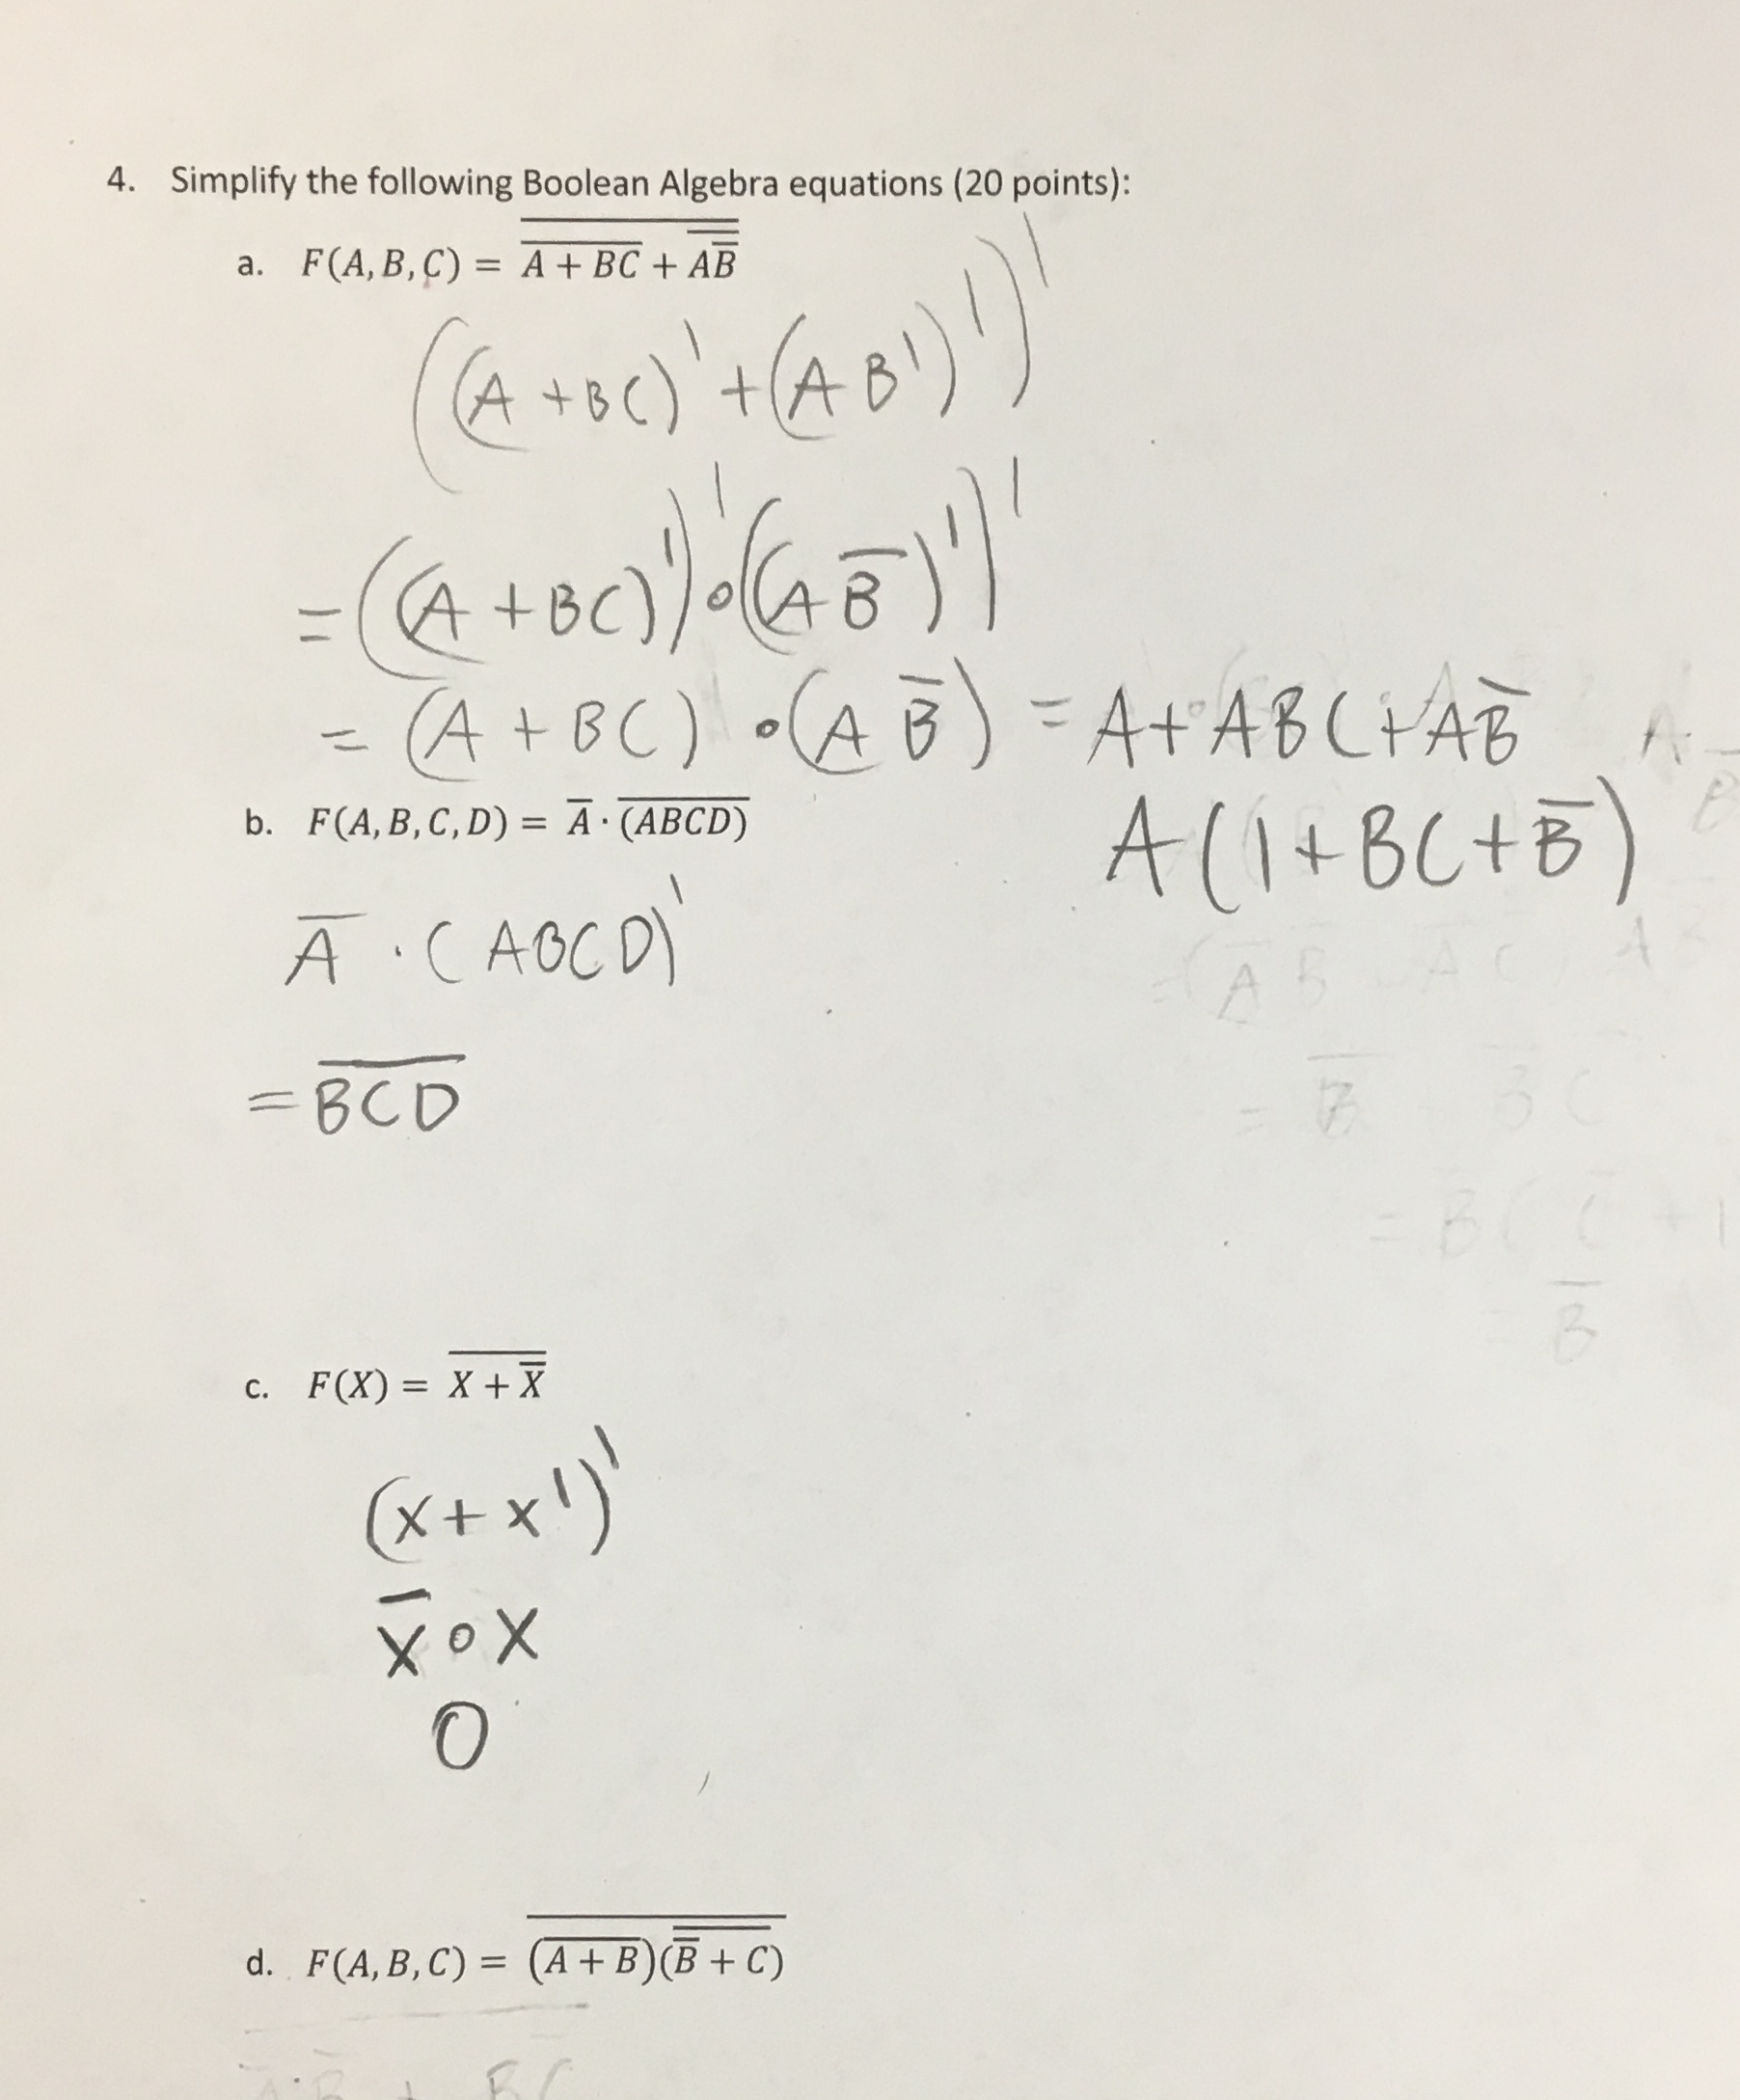 4. Simplify the following Boolean Algebra equations (20 points):
a. F(A, B, C) = \overline{\overline{A + BC} + \overline{A\overline{B}}}
((A + BC)' + (AB')')'
= ((A + BC)')' · ((A\overline{B})')'
= (A + BC) · (A\overline{B}) = A + ABC + A\overline{B}
b. F(A, B, C, D) = \overline{A} · \overline{(ABCD)}
A(1 + BC + \overline{B})
\overline{A} · (ABCD)'
= \overline{BCD}
c. F(X) = \overline{X + \overline{\overline{X}}}
(x + x')'
\overline{X} · X
0
d. F(A, B, C) = \overline{(\overline{A + B})(\overline{\overline{B} + C})}